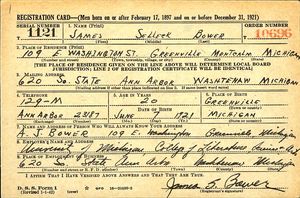 REGISTRATION CARD—(Men born on or after February 17, 1897 and on or before December 31, 1921)
SERIAL NUMBER 1. NAME (Print) ORDER NUMBER
1121 JAMES SELLECK BOWER 10696
(First) (Middle) (Last)
2. PLACE OF RESIDENCE (Print)
109 E WASHINGTON ST. GREENVILLE MONTCALM MICHIGAN
(Number and street) (Town, township, village, or city) (County) (State)
[THE PLACE OF RESIDENCE GIVEN ON THE LINE ABOVE WILL DETERMINE LOCAL BOARD
JURISDICTION; LINE 2 OF REGISTRATION CERTIFICATE WILL BE IDENTICAL]
3. MAILING ADDRESS
620 SO. STATE ANN ARBOR WASHTENAW MICHIGAN
4. TELEPHONE 5. AGE IN YEARS 6. PLACE OF BIRTH
129-M 20 GREENVILLE
DATE OF BIRTH
ANN ARBOR 23187 JUNE 1921 MICHIGAN
7. NAME AND ADDRESS OF PERSON WHO WILL ALWAYS KNOW YOUR ADDRESS
BOWER E. Washington Greenville Michigan
8. EMPLOYER'S NAME AND ADDRESS
University of Michigan College of Literature
9. PLACE OF EMPLOYMENT OR BUSINESS
620 So. State Ann Arbor Washtenaw Michigan
I AFFIRM THAT I HAVE VERIFIED ABOVE ANSWERS AND THAT THEY ARE TRUE.
D. S. S. Form 1
James S. Bower